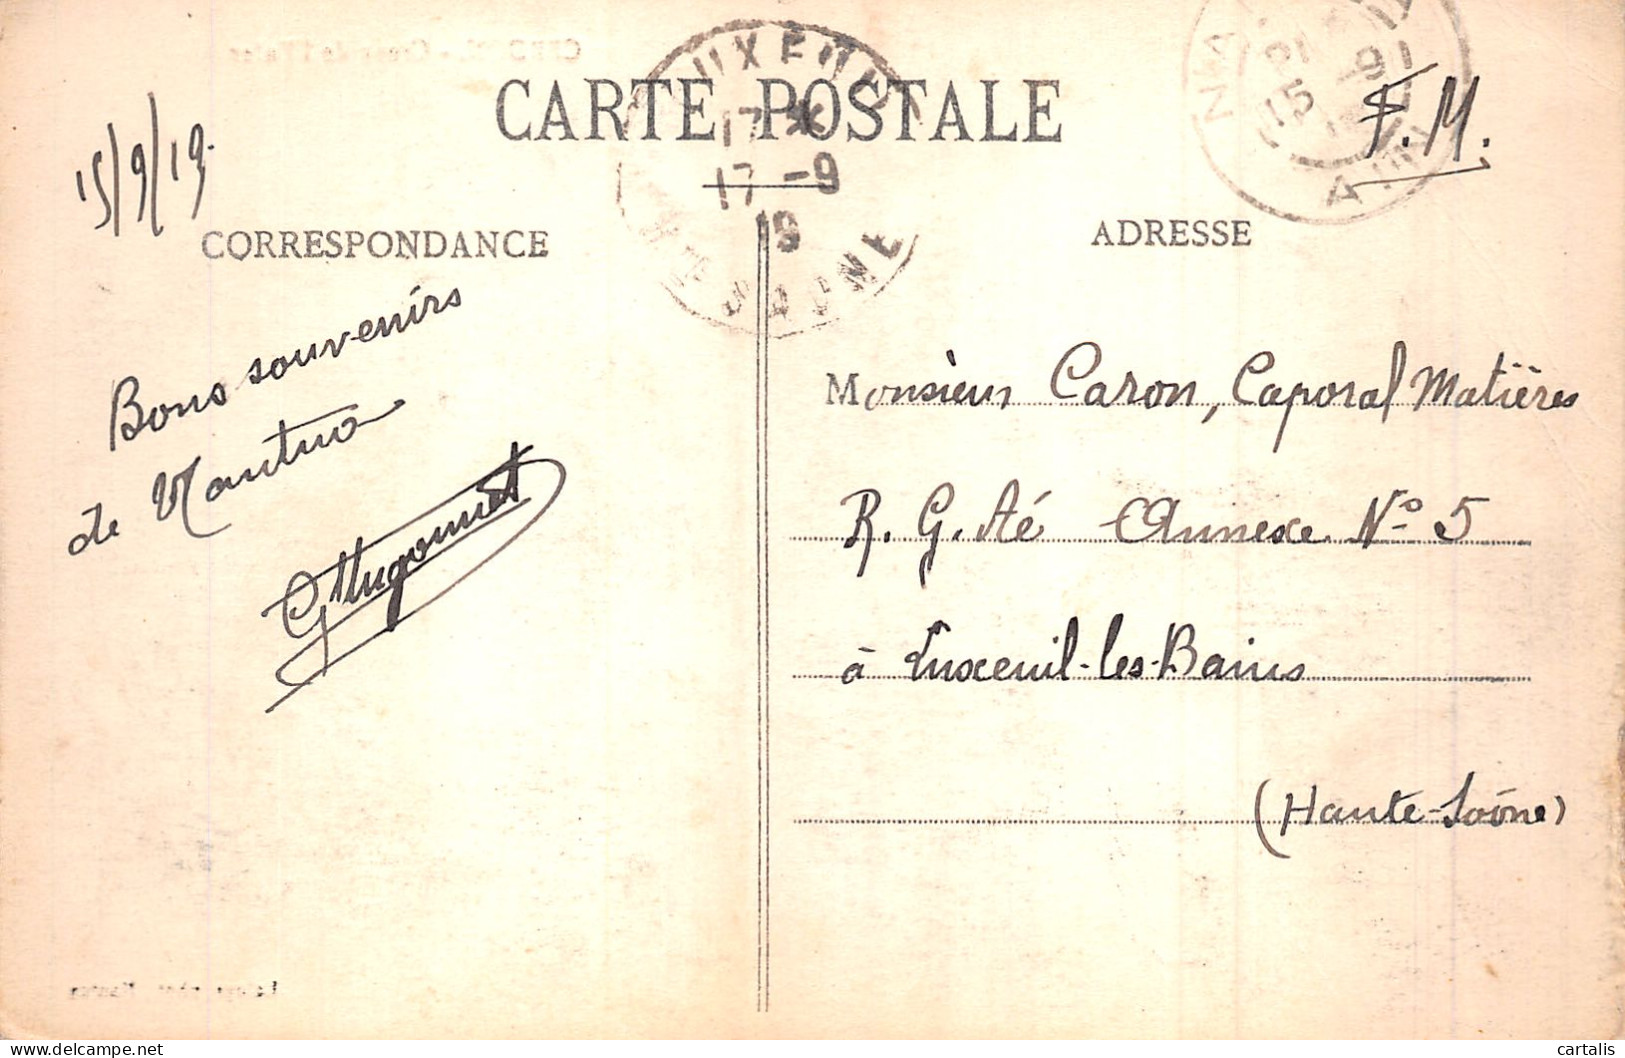 CARTE POSTALE
F.M.
15/9/19.
17 *
17 -9
19
21
15 -9
AIN
CORRESPONDANCE
ADRESSE
Bons souvenirs
de Nantua
GHugonnet
Monsieur Caron, Caporal Matières
R. G. Até Annexe N° 5
à Luxeuil-les-Bains
(Haute-Saône)
cartalis